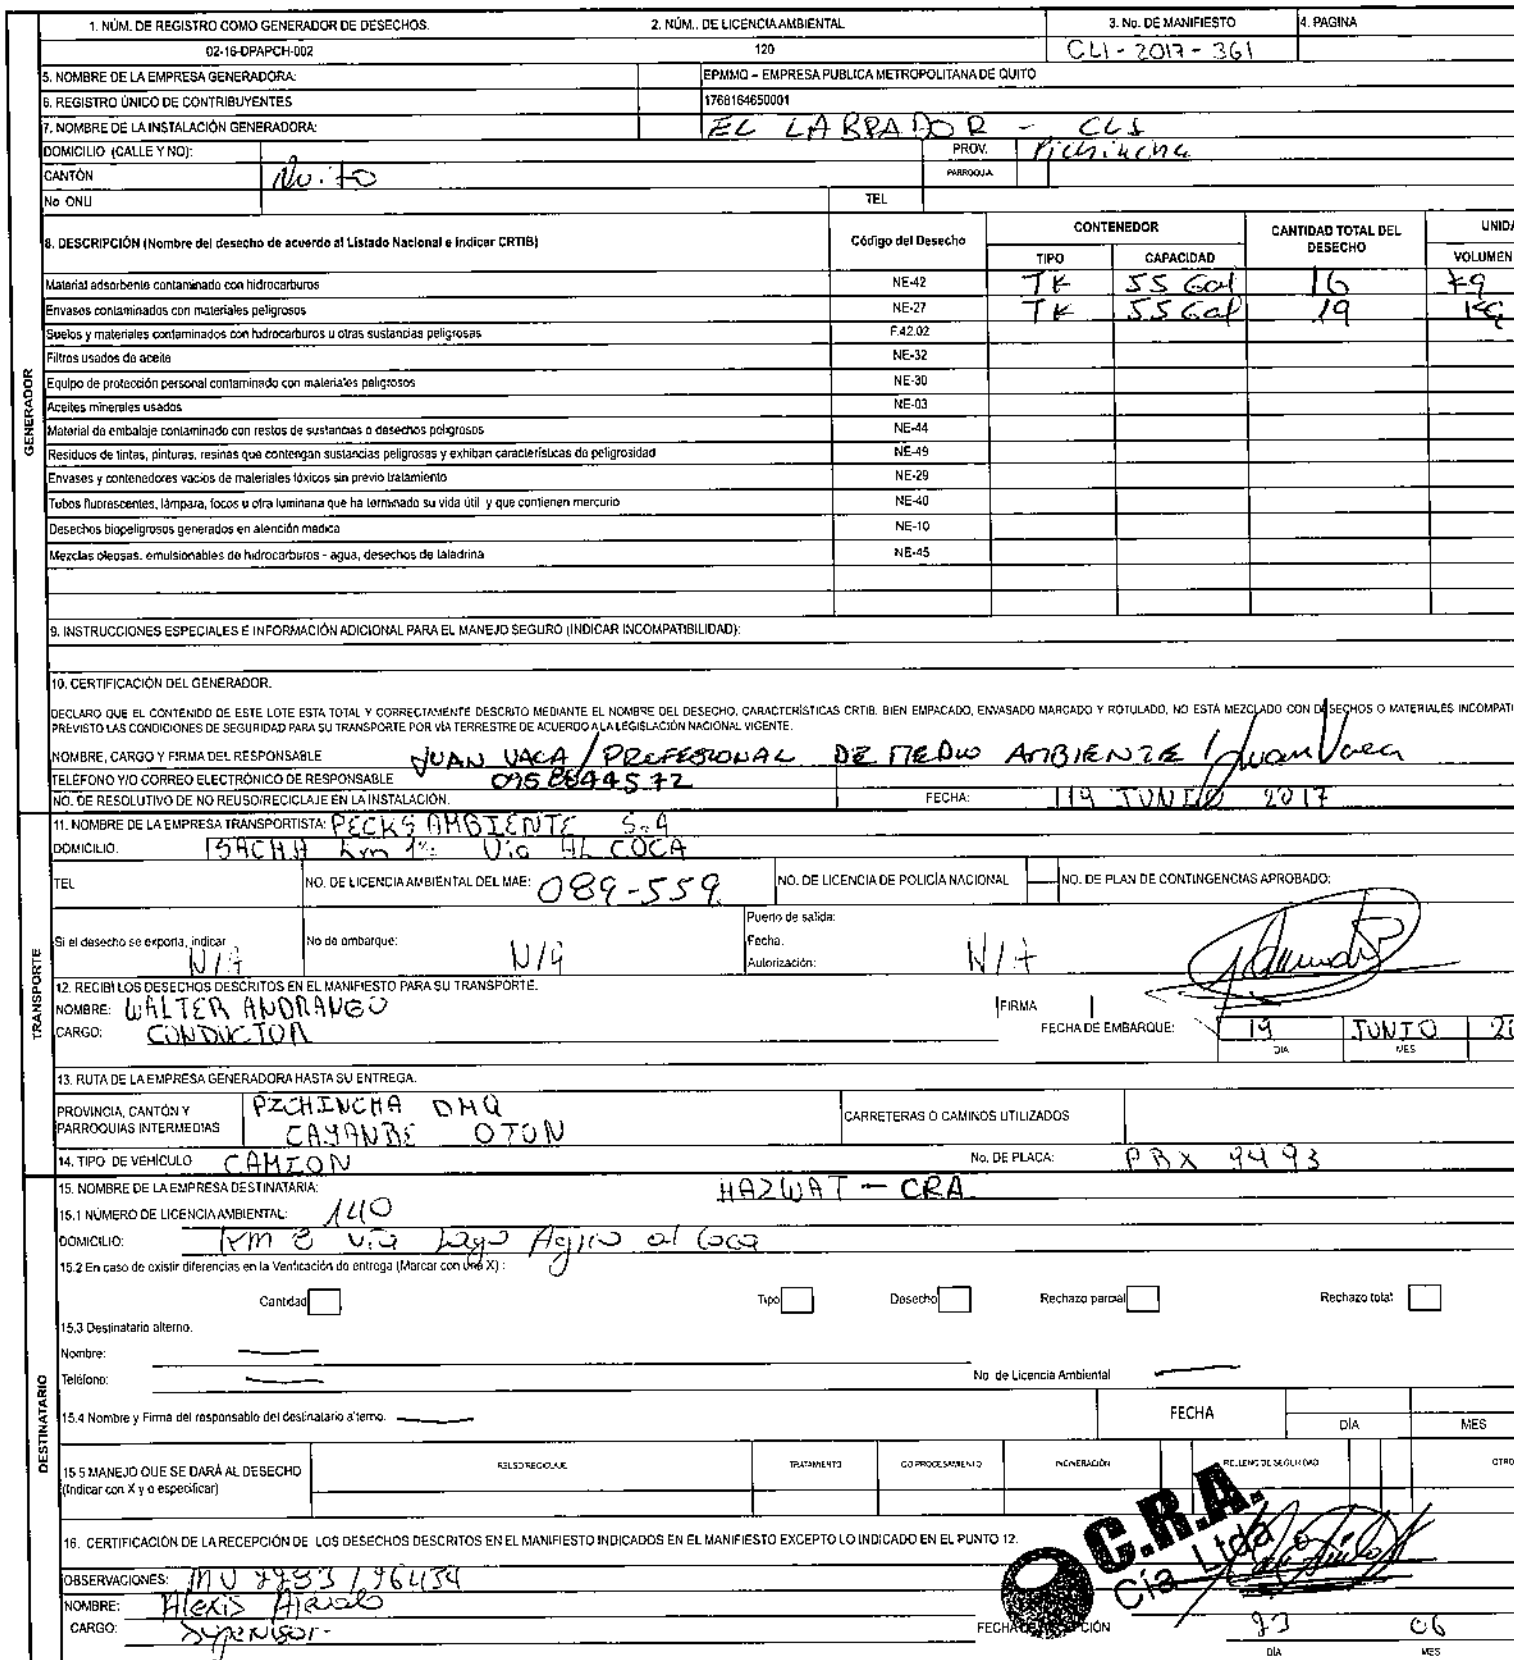 1. NÚM. DE REGISTRO COMO GENERADOR DE DESECHOS. 2. NÚM.. DE LICENCIA AMBIENTAL 3. No. DE MANIFIESTO 4. PAGINA
02-16-DPAPCH-002 120 CLI - 2017 - 361
5. NOMBRE DE LA EMPRESA GENERADORA: EPMMQ – EMPRESA PUBLICA METROPOLITANA DE QUITO
6. REGISTRO ÚNICO DE CONTRIBUYENTES 1768164650001
7. NOMBRE DE LA INSTALACIÓN GENERADORA: EL LABRADOR - CL1
DOMICILIO (CALLE Y NO): PROV. Pichincha
CANTÓN Quito PARROQUIA
No ONU TEL
8. DESCRIPCIÓN (Nombre del desecho de acuerdo al Listado Nacional e indicar CRTIB) Código del Desecho CONTENEDOR CANTIDAD TOTAL DEL DESECHO UNIDA
TIPO CAPACIDAD VOLUMEN
Material adsorbente contaminado con hidrocarburos NE-42 TK 55 Gal 16 Kg
Envases contaminados con materiales peligrosos NE-27 TK 55 Gal 19 KG
Suelos y materiales contaminados con hidrocarburos u otras sustancias peligrosas F.42.02
Filtros usados de aceite NE-32
Equipo de protección personal contaminado con materiales peligrosos NE-30
Aceites minerales usados NE-03
Material de embalaje contaminado con restos de sustancias o desechos peligrosos NE-44
Residuos de tintas, pinturas, resinas que contengan sustancias peligrosas y exhiban características de peligrosidad NE-49
Envases y contenedores vacíos de materiales tóxicos sin previo tratamiento NE-29
Tubos fluorescentes, lámpara, focos u otra luminaria que ha terminado su vida útil y que contienen mercurio NE-40
Desechos biopeligrosos generados en atención medica NE-10
Mezclas oleosas, emulsionables de hidrocarburos - agua, desechos de taladrina NE-45
GENERADOR
9. INSTRUCCIONES ESPECIALES E INFORMACIÓN ADICIONAL PARA EL MANEJO SEGURO (INDICAR INCOMPATIBILIDAD):
10. CERTIFICACIÓN DEL GENERADOR.
DECLARO QUE EL CONTENIDO DE ESTE LOTE ESTA TOTAL Y CORRECTAMENTE DESCRITO MEDIANTE EL NOMBRE DEL DESECHO, CARACTERÍSTICAS CRTIB. BIEN EMPACADO, ENVASADO MARCADO Y ROTULADO, NO ESTÁ MEZCLADO CON DESECHOS O MATERIALES INCOMPATI
PREVISTO LAS CONDICIONES DE SEGURIDAD PARA SU TRANSPORTE POR VÍA TERRESTRE DE ACUERDO A LA LEGISLACIÓN NACIONAL VIGENTE.
NOMBRE, CARGO Y FIRMA DEL RESPONSABLE JUAN VACA / PROFESIONAL DE MEDIO AMBIENTE / Juan Vaca
TELÉFONO Y/O CORREO ELECTRÓNICO DE RESPONSABLE
NO. DE RESOLUTIVO DE NO REUSO/RECICLAJE EN LA INSTALACIÓN. FECHA: 19 JUNIO 2017
11. NOMBRE DE LA EMPRESA TRANSPORTISTA: PECKS AMBIENTE S.A
DOMICILIO. SACHA Km Via AL COCA
TEL NO. DE LICENCIA AMBIENTAL DEL MAE: 089-559 NO. DE LICENCIA DE POLICÍA NACIONAL NO. DE PLAN DE CONTINGENCIAS APROBADO:
Puerto de salida:
Si el desecho se exporta, indicar N/A No de embarque: N/A Fecha. N/A
Autorización:
TRANSPORTE
12. RECIBÍ LOS DESECHOS DESCRITOS EN EL MANIFIESTO PARA SU TRANSPORTE.
NOMBRE: WALTER ANDRANGO FIRMA
CARGO: CONDUCTOR FECHA DE EMBARQUE: 19 JUNIO 20
DÍA MES
13. RUTA DE LA EMPRESA GENERADORA HASTA SU ENTREGA.
PROVINCIA, CANTÓN Y PARROQUIAS INTERMEDIAS PICHINCHA DMQ CARRETERAS O CAMINOS UTILIZADOS
CAYANBE OTON
14. TIPO DE VEHÍCULO CAMION No. DE PLACA: PBX 9493
15. NOMBRE DE LA EMPRESA DESTINATARIA: HAZWAT - CRA
15.1 NÚMERO DE LICENCIA AMBIENTAL: 140
DOMICILIO: Km 8 via Lago Agrio al Coca
15.2 En caso de existir diferencias en la Verificación de entrega (Marcar con una X) :
Cantidad Tipo Desecho Rechazo parcial Rechazo total
15.3 Destinatario alterno.
Nombre:
Teléfono: No de Licencia Ambiental
15.4 Nombre y Firma del responsable del destinatario alterno. FECHA DÍA MES
DESTINATARIO
15.5 MANEJO QUE SE DARÁ AL DESECHO REUSO/RECICLAJE TRATAMIENTO CO PROCESAMIENTO INCINERACIÓN RELLENO DE SEGURIDAD OTRO
(Indicar con X y o especificar)
16. CERTIFICACIÓN DE LA RECEPCIÓN DE LOS DESECHOS DESCRITOS EN EL MANIFIESTO INDICADOS EN EL MANIFIESTO EXCEPTO LO INDICADO EN EL PUNTO 12.
C.R.A.
Cía Ltda
OBSERVACIONES:
NOMBRE: Alexis
CARGO: Supervisor FECHA DE RECEPCIÓN 06
DÍA MES